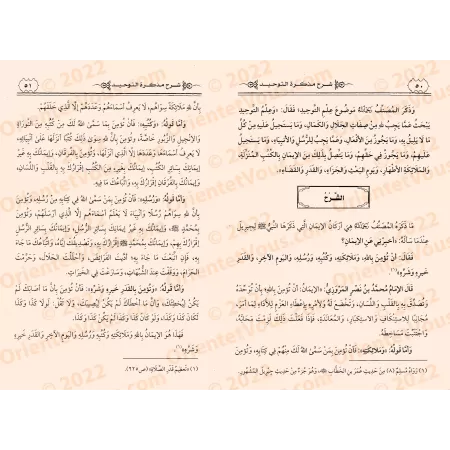 شرح مذكرة التوحيد
٥٠
وَذَكَرَ الْمُصَنِّفُ رَحِمَهُ اللهُ مَوْضُوعَ عِلْمِ التَّوْحِيدِ؛ فَقَالَ: «وَعِلْمُ التَّوْحِيدِ
يَبْحَثُ عَمَّا يَجِبُ لِلهِ مِنْ صِفَاتِ الْجَلَالِ وَالْكَمَالِ، وَمَا يَسْتَحِيلُ عَلَيْهِ مِنْ كُلِّ
مَا لَا يَلِيقُ بِهِ، وَمَا يَجُوزُ مِنَ الْأَفْعَالِ، وَعَمَّا يَجِبُ لِلرُّسُلِ وَالْأَنْبِيَاءِ، وَمَا يَسْتَحِيلُ
عَلَيْهِمْ، وَمَا يَجُوزُ فِي حَقِّهِمْ، وَمَا يَتَّصِلُ بِذَلِكَ مِنَ الْإِيمَانِ بِالْكُتُبِ الْمُنَزَّلَةِ،
وَالْمَلَائِكَةِ الْأَطْهَارِ، وَيَوْمِ الْبَعْثِ وَالْجَزَاءِ، وَالْقَدَرِ وَالْقَضَاءِ».
الشَّرْحُ
مَا ذَكَرَهُ الْمُصَنِّفُ رَحِمَهُ اللهُ هِيَ أَرْكَانُ الْإِيمَانِ الَّتِي ذَكَرَهَا النَّبِيُّ ﷺ لِجِبْرِيلَ
عِنْدَمَا سَأَلَهُ: «أَخْبِرْنِي عَنِ الْإِيمَانِ؟
فَقَالَ: أَنْ تُؤْمِنَ بِاللهِ، وَمَلَائِكَتِهِ، وَكُتُبِهِ، وَرُسُلِهِ، وَالْيَوْمِ الْآخِرِ، وَالْقَدَرِ
خَيْرِهِ وَشَرِّهِ»(١).
قَالَ الْإِمَامُ مُحَمَّدُ بْنُ نَصْرٍ الْمَرْوَزِيُّ: «الْإِيمَانُ: أَنْ تُؤْمِنَ بِاللهِ بِأَنْ تُوَحِّدَهُ
وَتُصَدِّقَ بِهِ بِالْقَلْبِ وَاللِّسَانِ، وَتَخْضَعَ لَهُ وَلِأَمْرِهِ بِإِعْطَاءِ الْعَزْمِ لِلْأَدَاءِ لِمَا أَمَرَ،
مُجَانِبًا لِلِاسْتِنْكَافِ وَالِاسْتِكْبَارِ، وَالْمُعَانَدَةِ، فَإِذَا فَعَلْتَ ذَلِكَ لَزِمْتَ مَحَابَّهُ،
وَاجْتَنَبْتَ مَسَاخِطَهُ.
وَأَمَّا قَوْلُهُ: «وَمَلَائِكَتِهِ»؛ فَأَنْ تُؤْمِنَ بِمَنْ سَمَّى اللهُ لَكَ مِنْهُمْ فِي كِتَابِهِ، وَتُؤْمِنَ
(١) رَوَاهُ مُسْلِمٌ (٨) مِنْ حَدِيثِ عُمَرَ بْنِ الْخَطَّابِ، وَهُوَ جُزْءٌ مِنْ حَدِيثِ جِبْرِيلَ الْمَشْهُورِ.
شرح مذكرة التوحيد
٥١
بِأَنَّ لِلهِ مَلَائِكَةً سِوَاهُمْ، لَا يَعْرِفُ أَسْمَاءَهُمْ وَعَدَدَهُمْ إِلَّا الَّذِي خَلَقَهُمْ.
وَأَمَّا قَوْلُهُ: «وَكُتُبِهِ»، فَأَنْ تُؤْمِنَ بِمَا سَمَّى اللهُ لَكَ مِنْ كُتُبِهِ مِنَ التَّوْرَاةِ
وَالْإِنْجِيلِ وَالزَّبُورِ خَاصَّةً، وَتُؤْمِنَ بِأَنَّ لِلهِ سِوَى ذَلِكَ كُتُبًا أَنْزَلَهَا عَلَى أَنْبِيَائِهِ،
لَا يَعْرِفُ أَسْمَاءَهَا وَعَدَدَهَا إِلَّا الَّذِي أَنْزَلَهَا، وَتُؤْمِنَ بِالْفُرْقَانِ، وَإِيمَانُكَ بِهِ غَيْرُ
إِيمَانِكَ بِسَائِرِ الْكُتُبِ، إِيمَانُكَ بِغَيْرِهِ مِنَ الْكُتُبِ إِقْرَارُكَ بِهِ بِالْقَلْبِ وَاللِّسَانِ،
وَإِيمَانُكَ بِالْفُرْقَانِ إِقْرَارُكَ بِهِ، وَاتِّبَاعُكَ مَا فِيهِ.
وَأَمَّا قَوْلُهُ: «وَرُسُلِهِ»، فَأَنْ تُؤْمِنَ بِمَنْ سَمَّى اللهُ فِي كِتَابِهِ مِنْ رُسُلِهِ، وَتُؤْمِنَ
بِأَنَّ لِلهِ سِوَاهُمْ رُسُلًا وَأَنْبِيَاءَ، لَا يَعْلَمُ أَسْمَاءَهُمْ إِلَّا الَّذِي أَرْسَلَهُمْ، وَتُؤْمِنَ
بِمُحَمَّدٍ ﷺ، وَإِيمَانُكَ بِهِ غَيْرُ إِيمَانِكَ بِسَائِرِ الرُّسُلِ، وَإِيمَانُكَ بِسَائِرِ الرُّسُلِ
إِقْرَارُكَ بِهِمْ، وَإِيمَانُكَ بِمُحَمَّدٍ ﷺ إِقْرَارُكَ بِهِ، وَتَصْدِيقُكَ إِيَّاهُ وَاتِّبَاعُكَ مَا جَاءَ
بِهِ، فَإِذَا اتَّبَعْتَ مَا جَاءَ بِهِ: أَدَّيْتَ الْفَرَائِضَ، وَأَحْلَلْتَ الْحَلَالَ، وَحَرَّمْتَ
الْحَرَامَ، وَوَقَفْتَ عِنْدَ الشُّبُهَاتِ، وَسَارَعْتَ فِي الْخَيْرَاتِ.
وَأَمَّا قَوْلُهُ: «وَتُؤْمِنَ بِالْقَدَرِ خَيْرِهِ وَشَرِّهِ»: فَأَنْ تُؤْمِنَ بِأَنَّ مَا أَصَابَكَ لَمْ
يَكُنْ لِيُخْطِئَكَ، وَأَنَّ مَا أَخْطَأَكَ لَمْ يَكُنْ لِيُصِيبَكَ، وَلَا تَقُلْ: لَوْلَا كَذَا وَكَذَا
لَكَانَ كَذَا وَكَذَا، وَلَوْ كَانَ كَذَا وَكَذَا لَمْ يَكُنْ كَذَا وَكَذَا.
فَهَذَا هُوَ الْإِيمَانُ بِاللهِ وَمَلَائِكَتِهِ وَكُتُبِهِ وَرُسُلِهِ وَالْيَوْمِ الْآخِرِ وَالْقَدَرِ خَيْرِهِ
وَشَرِّهِ»(١).
(١) «تَعْظِيمُ قَدْرِ الصَّلَاةِ» (ص٢٢٥).
© 2022